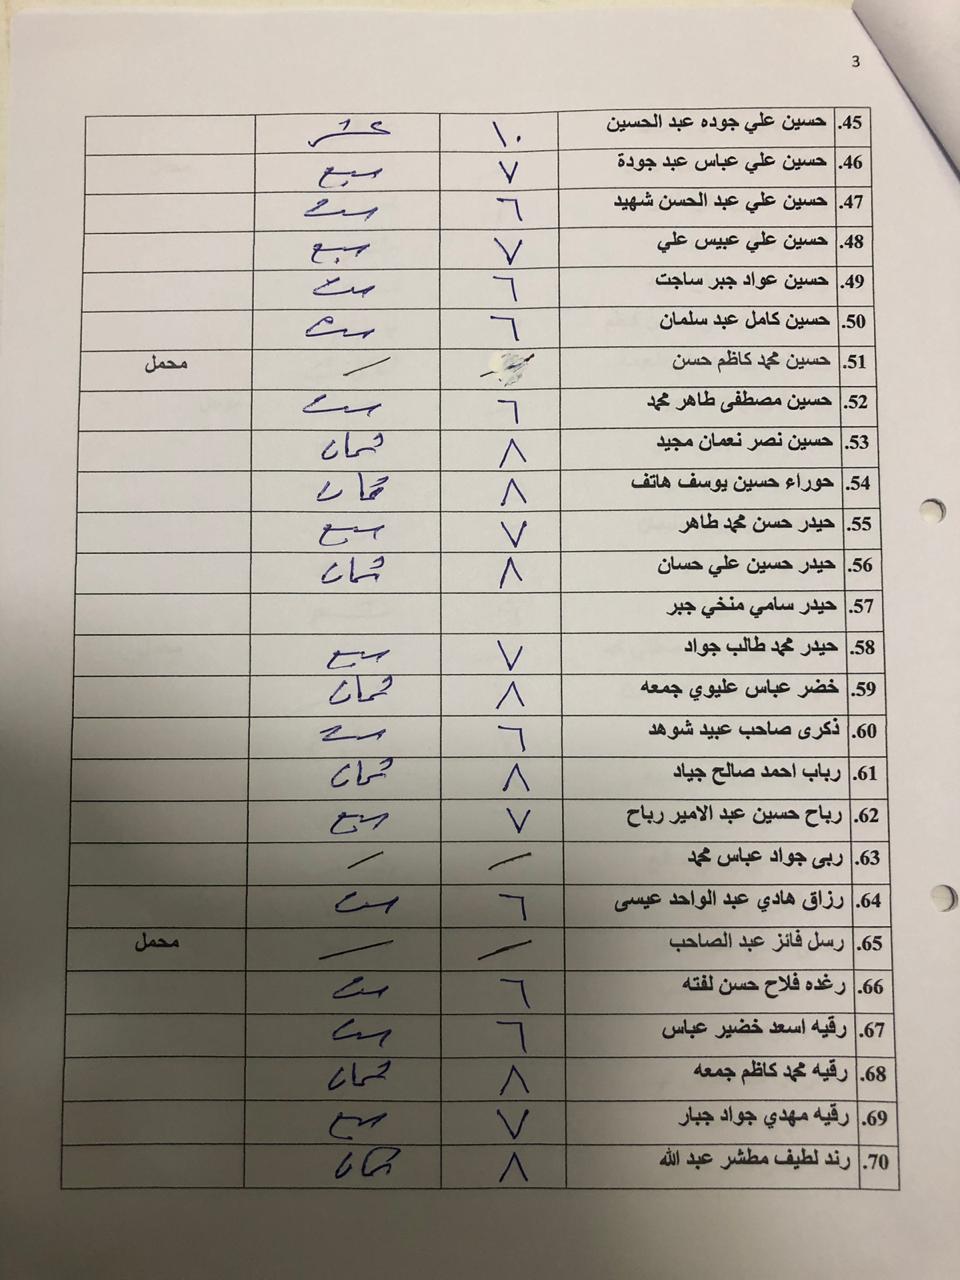 3
45. حسين علي جوده عبد الحسين ١٠ عشر
46. حسين علي عباس عبد جودة ٧ سبع
47. حسين علي عبد الحسن شهيد ٦ ست
48. حسين علي عبيس علي ٧ سبع
49. حسين عواد جبر ساجت ٦ ست
50. حسين كامل عبد سلمان ٦ ست
51. حسين محمد كاظم حسن / / محمل
52. حسين مصطفى طاهر محمد ٦ ست
53. حسين نصر نعمان مجيد ٨ ثمان
54. حوراء حسين يوسف هاتف ٨ ثمان
55. حيدر حسن محمد طاهر ٧ سبع
56. حيدر حسين علي حسان ٨ ثمان
57. حيدر سامي منخي جبر
58. حيدر محمد طالب جواد ٧ سبع
59. خضر عباس عليوي جمعه ٨ ثمان
60. ذكرى صاحب عبيد شوهد ٦ ست
61. رباب احمد صالح جياد ٨ ثمان
62. رباح حسين عبد الامير رباح ٧ سبع
63. ربى جواد عباس محمد / /
64. رزاق هادي عبد الواحد عيسى ٦ ست
65. رسل فائز عبد الصاحب / / محمل
66. رغده فلاح حسن لفته ٦ ست
67. رقيه اسعد خضير عباس ٦ ست
68. رقيه محمد كاظم جمعه ٨ ثمان
69. رقيه مهدي جواد جبار ٧ سبع
70. رند لطيف مطشر عبد الله ٨ ثمان